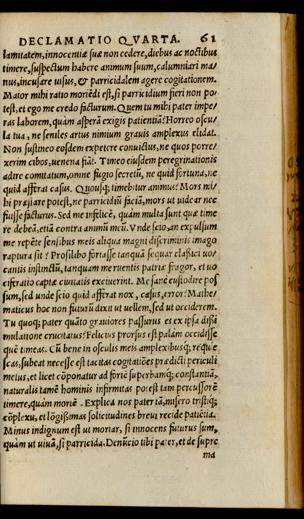 DECLAMATIO QVARTA. 61
lamitatem, innocentiæ suæ non cedere, diebus ac noctibus
timere, suspectum habere animum suum, calumniari ma-
nus, incusare uisus, & parricidalem agere cogitationem.
Maior mihi ratio moriēdi est, si parricidium fieri non po-
test, et ego me credo facturum. Quem tu mihi pater impe-
ras laborem, quàm asperā exigis patientiā? Horreo oscu-
la tua, ne seniles artus nimium grauis amplexus elidat.
Non sustineo eosdem expetere conuictus, ne quos porre-
xerim cibos, uenena fiāt. Timeo eiusdem peregrinationis
adire comitatum, omne fugio secretū, ne quid fortuna, ne
quid afferat casus. Quousq; timebitur animus? Mors mi-
hi præstare potest, ne parricidiū faciā, mors ut uidear nec
fuisse facturus. Sed me infelicē, quàm multa sunt quæ time
re debeā, etiā contra animū meū. Vnde scio, an expulsum
me repēte sensibus meis aliqua magni discriminis imago
raptura sit? Prosilibo fortasse tanquā sequar classici uo-
cantis instinctū, tanquam me ruentis patriæ fragor, et uo
ciferatio captæ ciuitatis exciuerint. Me sanè custodire pos
sum, sed unde scio quid afferat nox, casus, error? Mathe-
maticus hoc non futurū dixit ut uellem, sed ut occiderem.
Tu quoq; pater quāto grauiores passurus es ex ipsa dissi
mulatione cruciatus? Felicius prorsus est palàm occidisse
quē timeas. Cū bene in osculis meis amplexibusq; requie
scas, subeat necesse est tacitas cogitatiōes prædicti periculi
metus, et licet cōponatur ad fortē superbamq; constantiā,
naturalis tamē hominis infirmitas potest tam percussorē
timere, quàm moriē. Explica nos pater tā, misero tristiq;
cōplexu, et lōgissimas solicitudines breui recide patiētia.
Minus indignum est ut moriar, si innocens futurus sum,
quàm ut uiuā, si parricida. Denūcio tibi pater, et de supre
ma